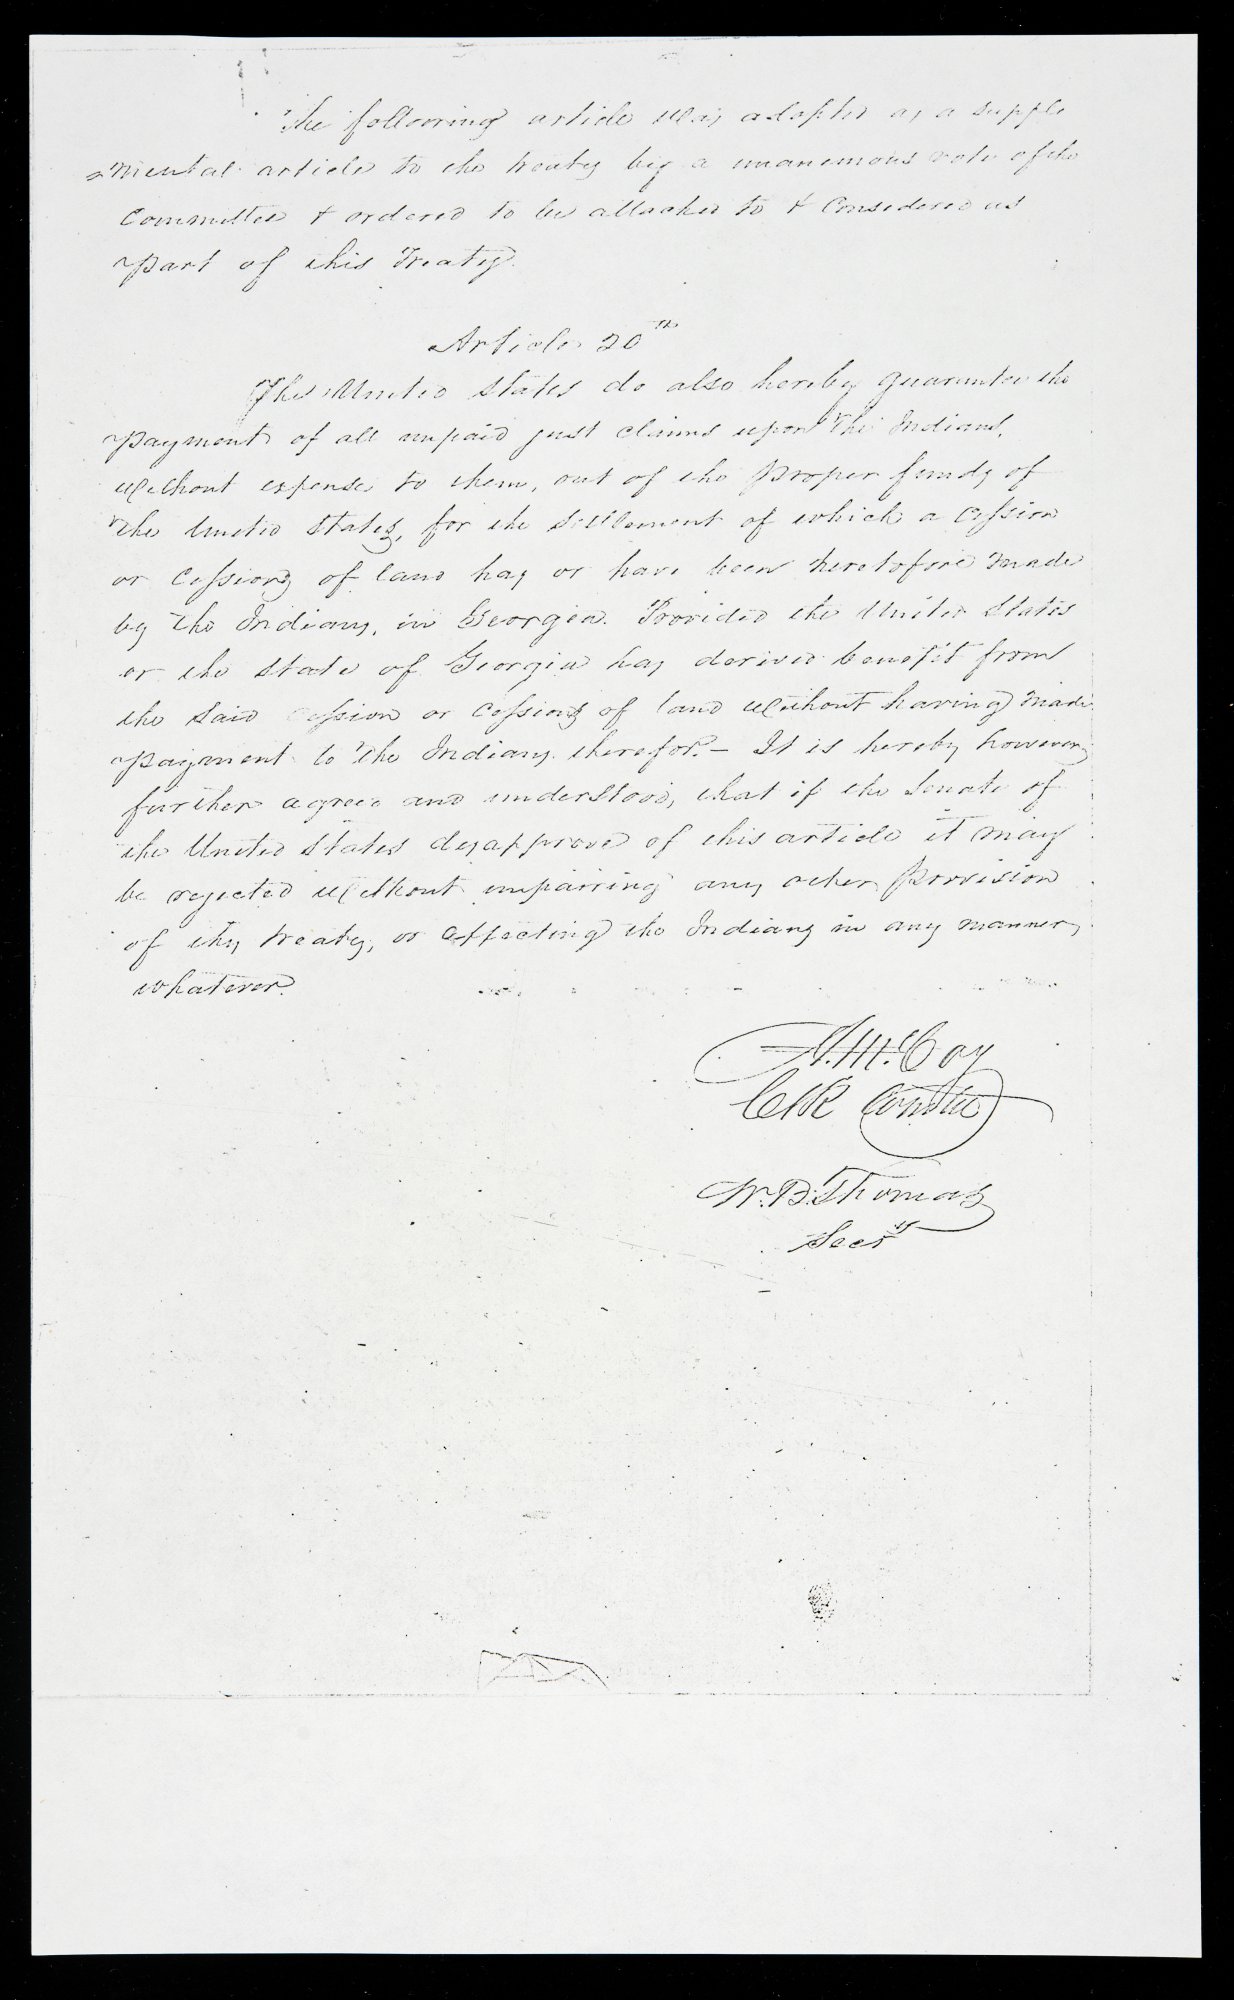 The following article was adopted as a supple
=mental article to the treaty by a unanemous vote of the
Committee & ordered to be attached to & Considered as
part of this Treaty.
Article 20th
The United States do also hereby guarantee the
payment of all unpaid just claims upon the Indians,
without expense to them, out of the proper funds of
the United States, for the settlement of which a cession
or cessions of land has or have been heretofore made
by the Indians, in Georgia. Provided the United States
or the State of Georgia has derived benefit from
the said cession or cessions of land without having made
payment to the Indians therefor.— It is hereby however,
further agreed and understood, that if the Senate of
the United States disapprove of this article it may
be rejected without impairing any other provision
of this treaty, or affecting the Indians in any manner,
whatever.
A. McCoy
Clk Comtee
W. B. Thomas
Secry